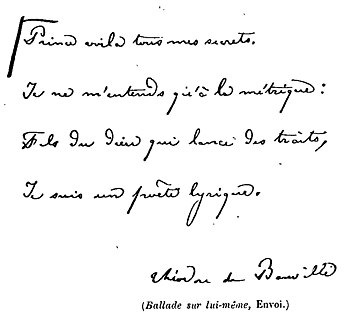 Prince voila tous mes secrets.
Je ne m'entends qu'à la métrique:
Fils du dieu qui lance des traits,
Je suis un poëte lyrique.
Théodore de Banville
(Ballade sur lui-même, Envoi.)